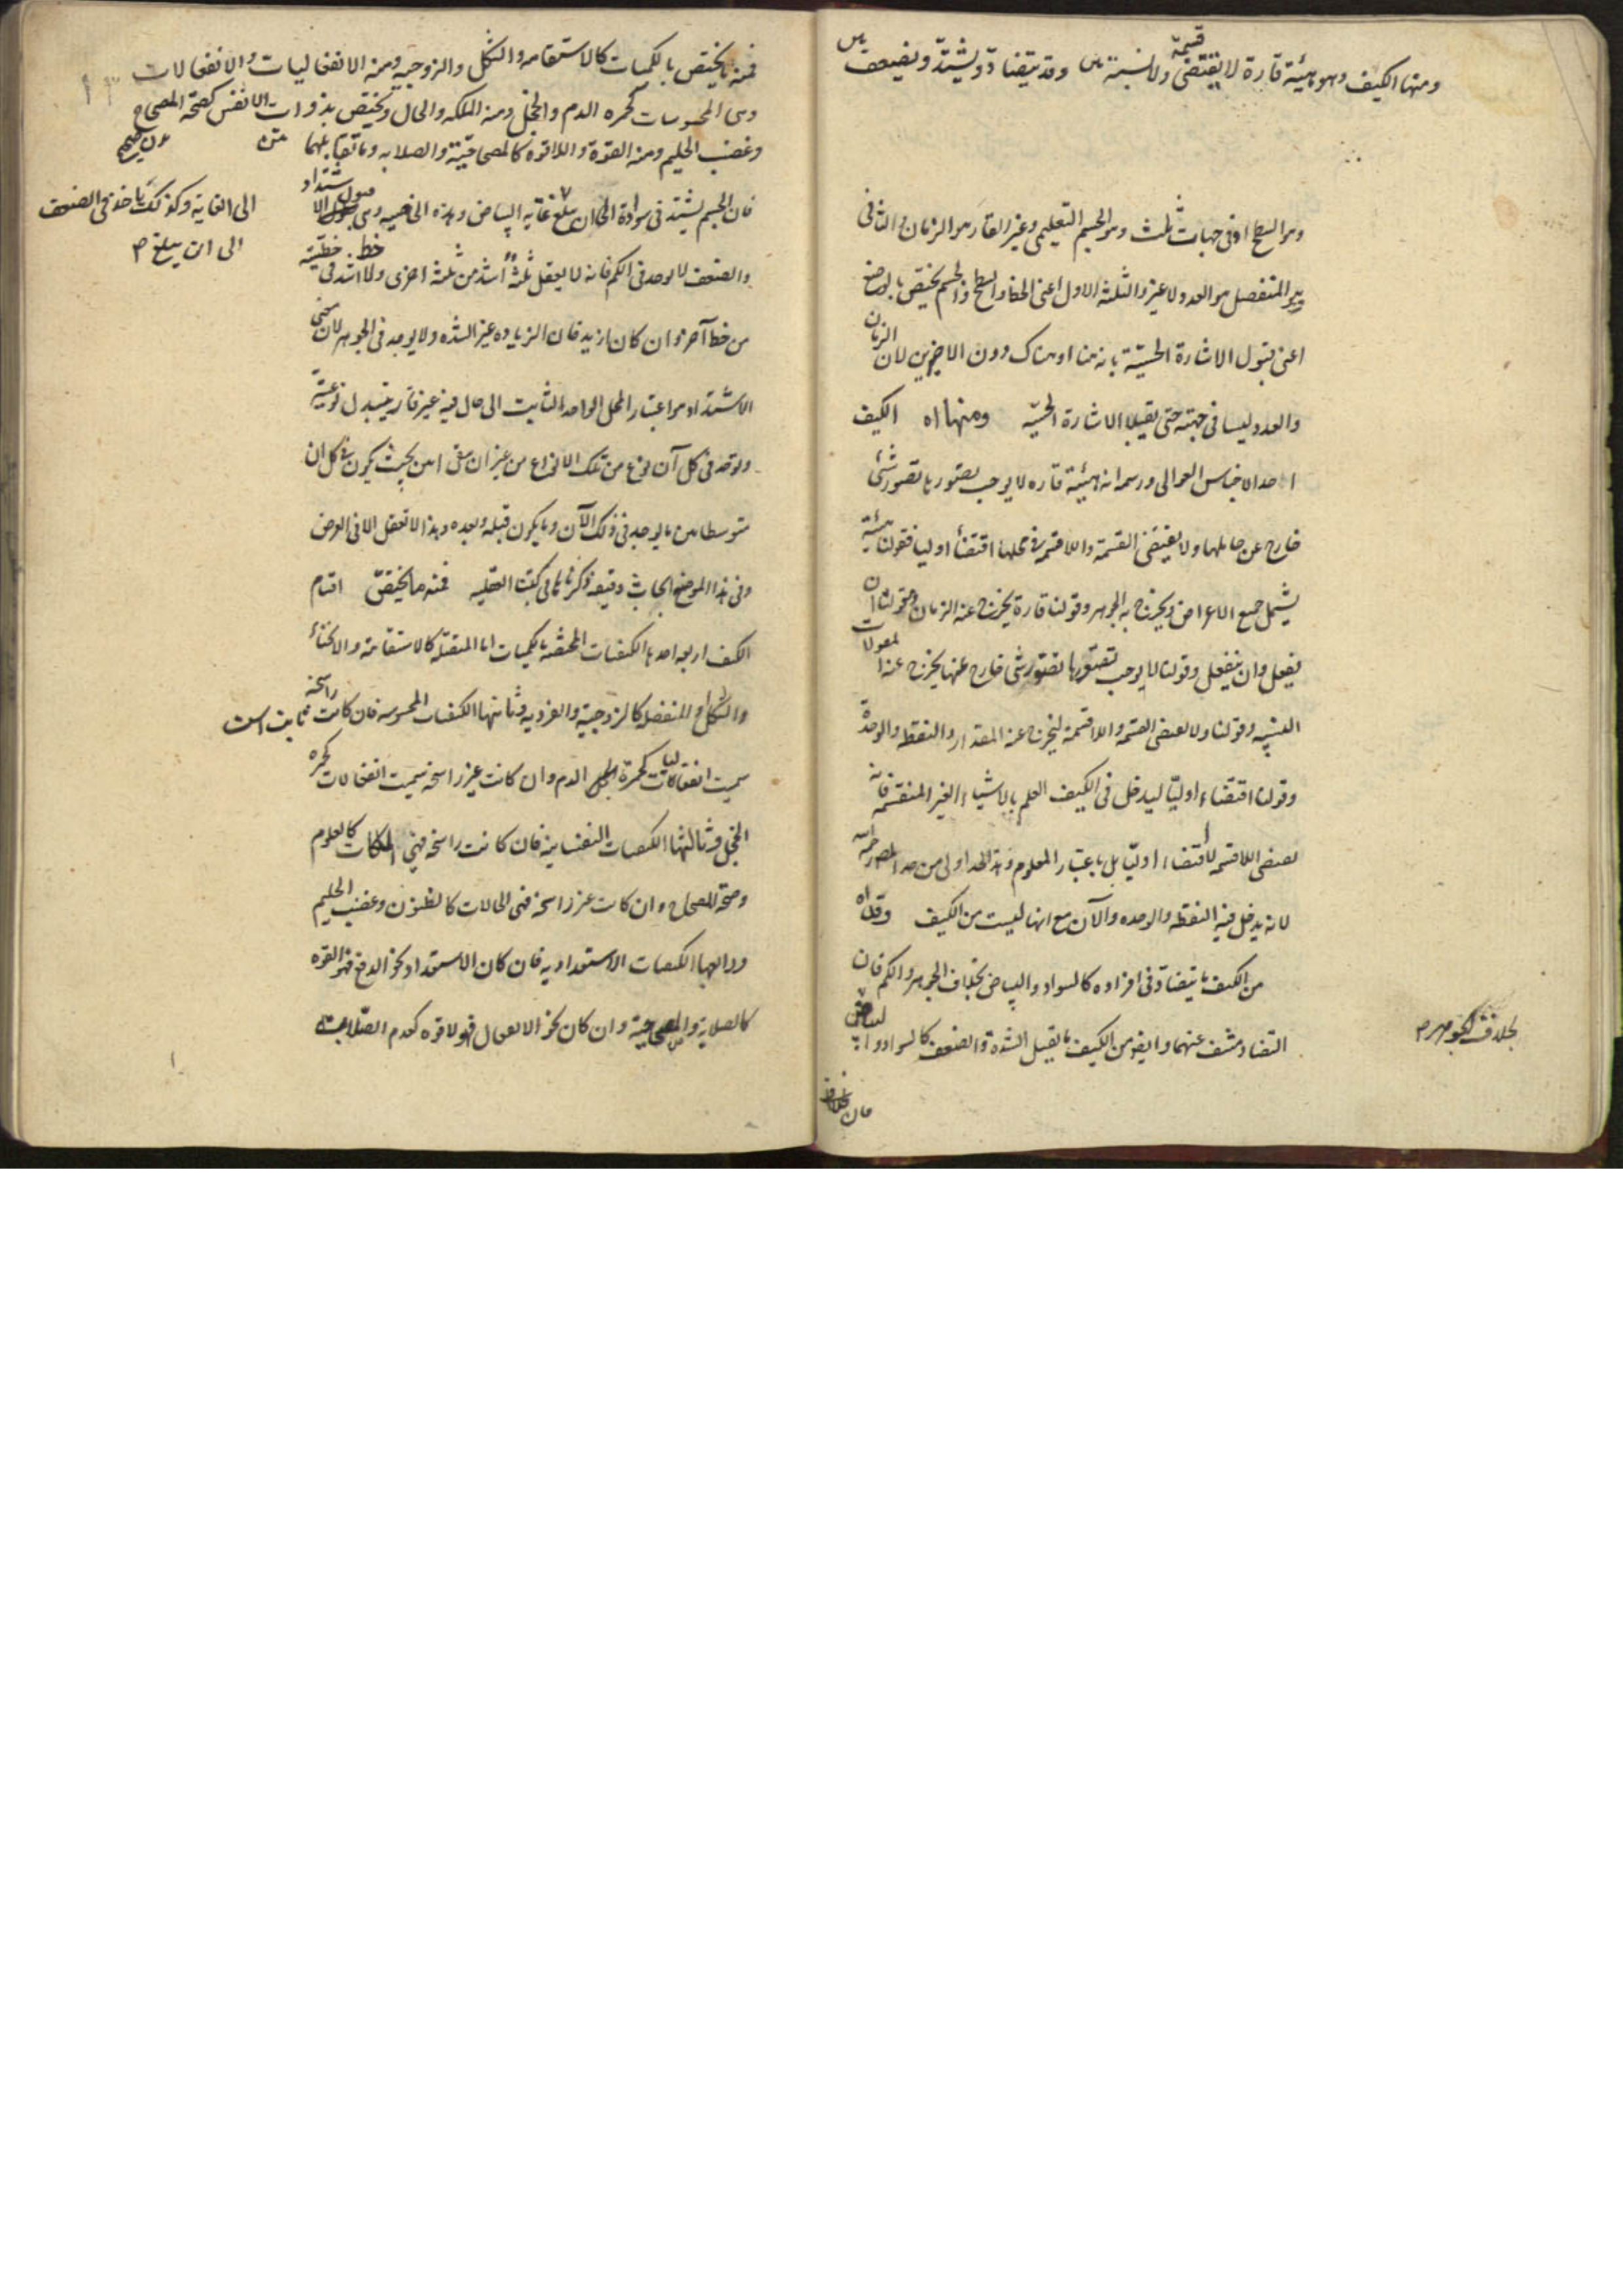 ومنها الكيف وهو هيئة قارة لا يقتضى قسمة ولا نسبة وقد يتضاد ويشتد ويضعف
وهو السطح او فى جهات ثلث وهو الجسم التعليمى وغير القار هو الزمان والثانى
هو المنفصل هو العدد لا غير والثلثة الاول اعنى الخط والسطح والجسم يختص بالوضع
اعنى قبول الاشارة الحسية بانه هنا او هناك دون الاخيرين لان الزمان
والعدد ليسا فى جهته حتى يقبلا الاشارة الحسية ومنها اه الكيف
احد الاجناس العوالى ورسمه انه هيئة قاره لا يوجب تصورها تصور شئ
خارج عن حاملها ولا يقتضى القسمة واللاقسمة فى محلها اقتضأ اوليا فقولنا هيئة
يشمل جميع الاعراض ويخرج به الجوهر وقولنا قارة يخرج عنه الزمان وان
يفعل وان ينفعل وقولنا لا يوجب تصورها تصور شئ خارج عنها يخرج عنه المقولات
النسبيه وقولنا ولا يقتضى القسمه واللاقسمة ليخرج عنه المقدار والنقطه والوحدة
وقولنا اقتضاء اوليّا ليدخل فى الكيف العلم بالاشياء الغير المنقسمه فانه
يقتضى اللاقسمه لا اقتضاء اوليّا بل باعتبار المعلوم وهذا الحد اولى من حد المصر رحمه الله
لانه يدخل فيه النقطه والوحده والآن مع انها ليست من الكيف وقد اه
من الكيف ما يتضاد فى افراده كالسواد والبياض بخلاف الجوهر والكم فان
التضاد منتف عنهما وايضا من الكيف ما يقبل الشدة والضعف كالسواد والبياض
بخلاف الجوهر م
فان
فمنه ما يختص بالكميات كالاستقامه والشكل والزوجيه ومنه الانفعاليات والانفعالات
وهى المحسوسات كحمره الدم والخجل ومنه الملكه والحال ويختص بذوات الانفس كصحه المصحاح
وغضب الحليم ومنه القوة واللاقوه كالمصحاحيّة والصلابه وما تقابلهما متن
فان الجسم يشتد فى سواده الى ان يبلغ غاية البياض وهذه الخاصيه وهى قبول الاشتداد
الى الغاية وكذلك ياخذ فى الضعف
الى ان يبلغ م
والضعف لا يوجد فى الكم فانه لا يعقل ثلثةٌ اشد من ثلثة اخرى ولا خط اشد فى خطيّته
من خط آخر وان كان ازيد فان الزياده غير الشده ولا يوجد فى الجوهر لان معنى
الاشتداد هو اعتبار المحل الواحد الثابت الى حال فيه غير قار يتبدل نوعيّة
ويوجد فى كل آن نوع من تلك الانواع من غير ان يبقى آنين بحيث يكون فى كل ان
متوسطا بين ما يوجد فى ذلك الآن وما يكون قبله وبعده وهذا لا يعقل الا فى العرض
وفى هذا الموضع ابحاث دقيقه ذكرناها فى كتبنا العقليه فمنه ما يختص اقسام
الكيف اربعه احدها الكيفيات المختصّه بالكميات اما المتصله كالاستقامة والانحناء
والشكل او المنفصله كالزوجية والفرديه وثانيها الكيفيات المحسوسه فان كانت راسخة ثابت است
سميت انفعاليات كحمرة الدم وان كانت غير راسخه سميت انفعالات كحمره
الخجل وثالثها الكيفيات النفسانيه فان كانت راسخه فهى الملكات كالعلوم
وصحة المصحاح وان كانت غير راسخه فهى الحالات كالظنون وغضب الحليم
ورابعها الكيفيات الاستعداديه فان كان الاستعداد نحو الدفع فهو القوه
كالصلابة والمصحاحية وان كان نحو الانفعال فهو لا قوه كعدم الصّلابت